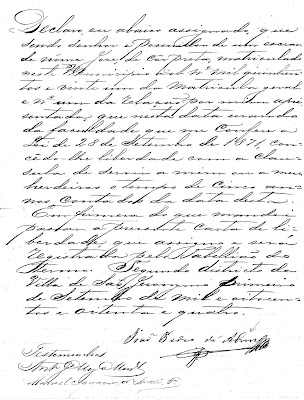 Declaro, eu abaixo assignado, que
sendo senhor e possuidor de um escravo
de nome José de côr preta, matriculado
neste Municipio sob Nº mil quinhen
tos e vinte um da Matricula geral
e Nº um da relação por mim apre
sentada, que nesta data usando
da faculdade que me confere a
Lei de 28 de Setembro de 1871, con
cedo-lhe liberdade com a clau
sula de servir a mim ou a meus
herdeiros o tempo de cinco an
nos contados da data desta.
Em firmeza do que mandei
passar a presente carta de li
berdade, que assigno e será
registrada pelo Tabellião do
Termo. Segundo districto da
Villa de São Jeronymo primeiro
de Setembro de mil e oitocen
tos e oitenta e quatro.
João
Testemunhas
Manoel